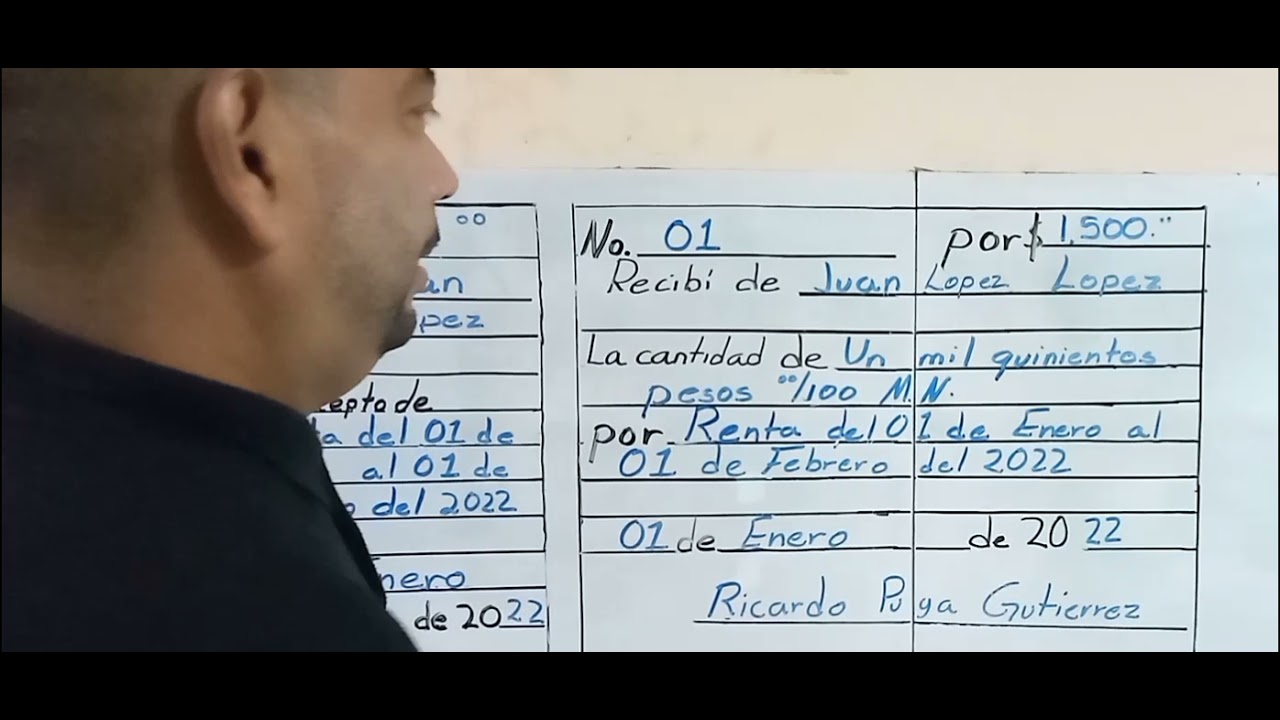 oo
an
pez
epto de
a del 01 de
al 01 de
o del 2022
nero
de 2022
No. 01 por $ 1,500.⁰⁰
Recibí de Juan Lopez Lopez
La cantidad de Un mil quinientos
pesos ⁰⁰/100 M.N.
por Renta del 01 de Enero al
01 de Febrero del 2022
01 de Enero de 2022
Ricardo Puga Gutierrez